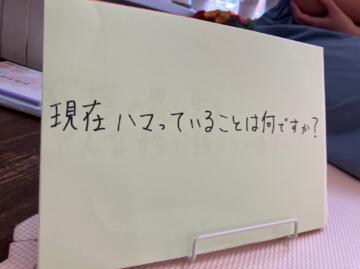 現在ハマっていることは何ですか?